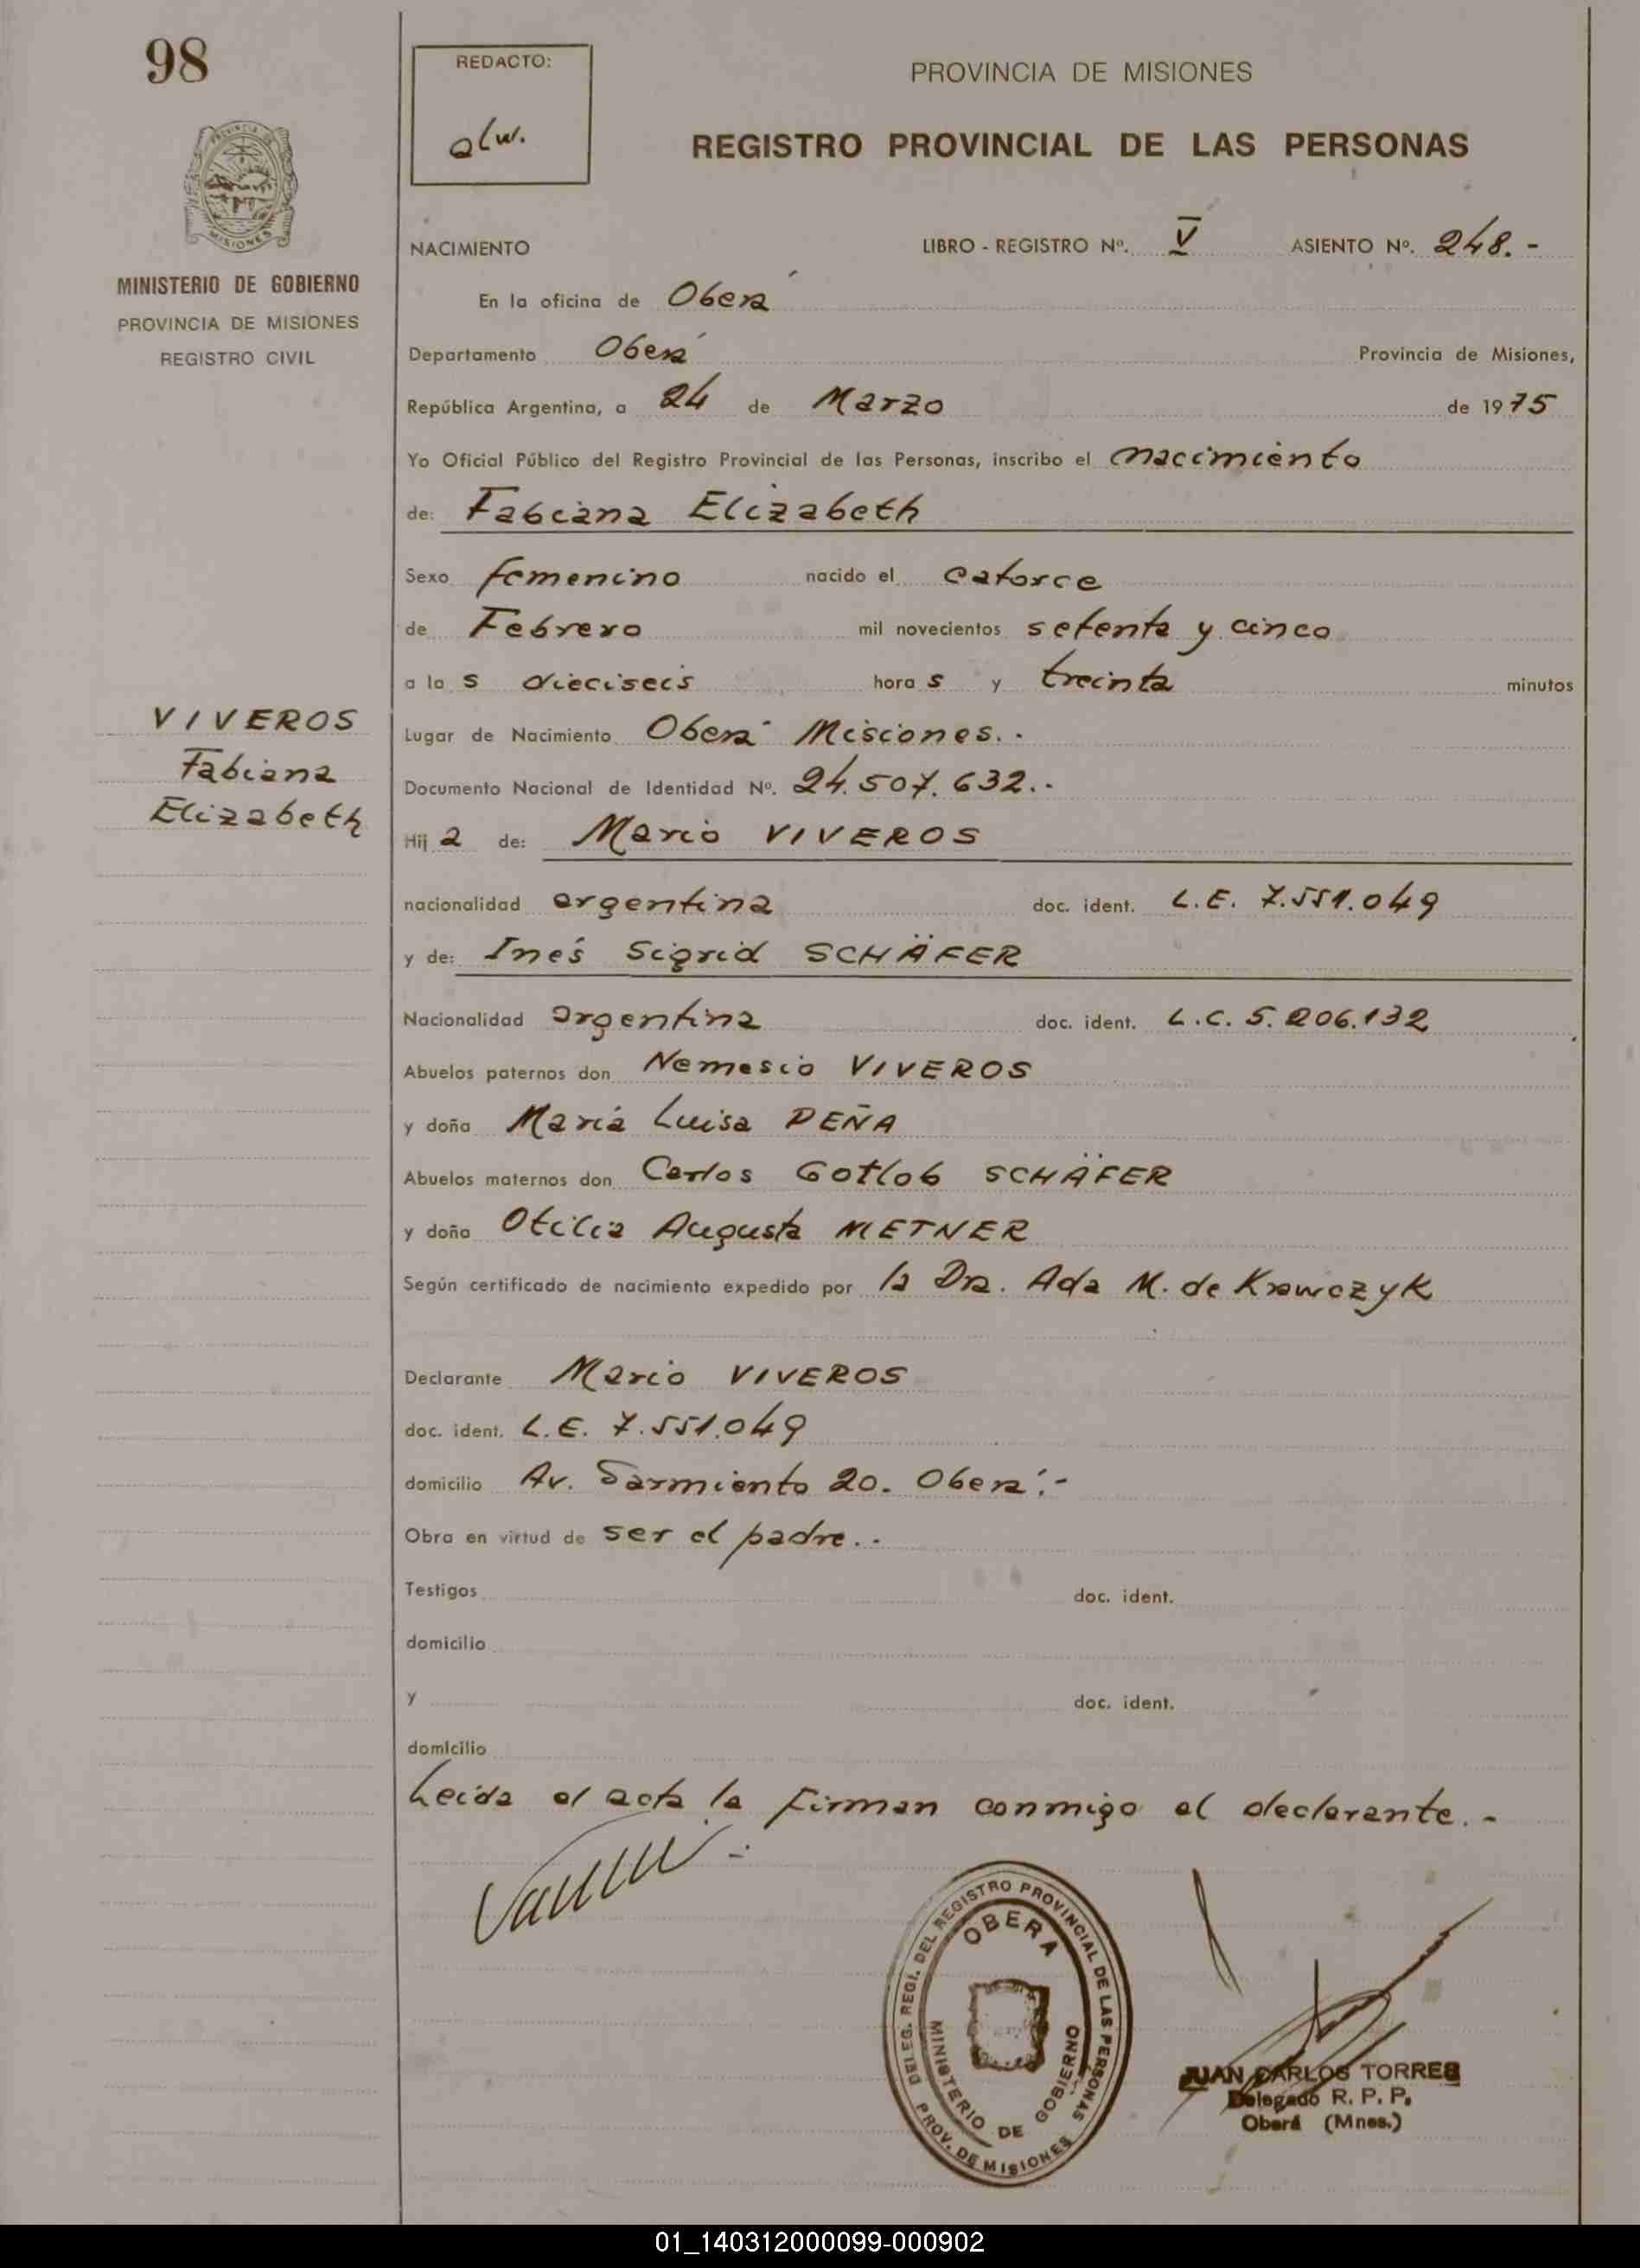 98
REDACTO:
alw.
PROVINCIA DE MISIONES
REGISTRO PROVINCIAL DE LAS PERSONAS
MISIONES
MINISTERIO DE GOBIERNO
PROVINCIA DE MISIONES
REGISTRO CIVIL
NACIMIENTO LIBRO - REGISTRO Nº. V ASIENTO Nº. 248.-
En la oficina de Oberá
Departamento Oberá Provincia de Misiones,
República Argentina, a 24 de Marzo de 1975
Yo Oficial Público del Registro Provincial de las Personas, inscribo el nacimiento
de: Fabiana Elizabeth
Sexo femenino nacido el catorce
de Febrero mil novecientos setenta y cinco
a la s dieciseis hora s y treinta minutos
VIVEROS
Fabiana
Elizabeth
Lugar de Nacimiento Oberá Misiones.-
Documento Nacional de Identidad Nº. 24.507.632.-
Hij a de: Mario VIVEROS
nacionalidad argentina doc. ident. L.E. 7.551.049
y de: Inés Sigrid SCHÄFER
Nacionalidad argentina doc. ident. L.C. 5.206.132
Abuelos paternos don Nemesio VIVEROS
y doña María Luisa PEÑA
Abuelos maternos don Carlos Gotlob SCHÄFER
y doña Otilia Augusta METNER
Según certificado de nacimiento expedido por la Dra. Ada M. de Krawczyk
Declarante Mario VIVEROS
doc. ident. L.E. 7.551.049
domicilio Av. Sarmiento 20. Oberá.-
Obra en virtud de ser el padre.-
Testigos doc. ident.
domicilio
y doc. ident.
domicilio
Leída el acta la firman conmigo el declarante.-
DELEG. REGI. DEL REGISTRO PROVINCIAL DE LAS PERSONAS
OBERA
MINISTERIO DE GOBIERNO
PROV. DE MISIONES
JUAN CARLOS TORRES
Delegado R. P. P.
Oberá (Mnes.)
01_140312000099-000902